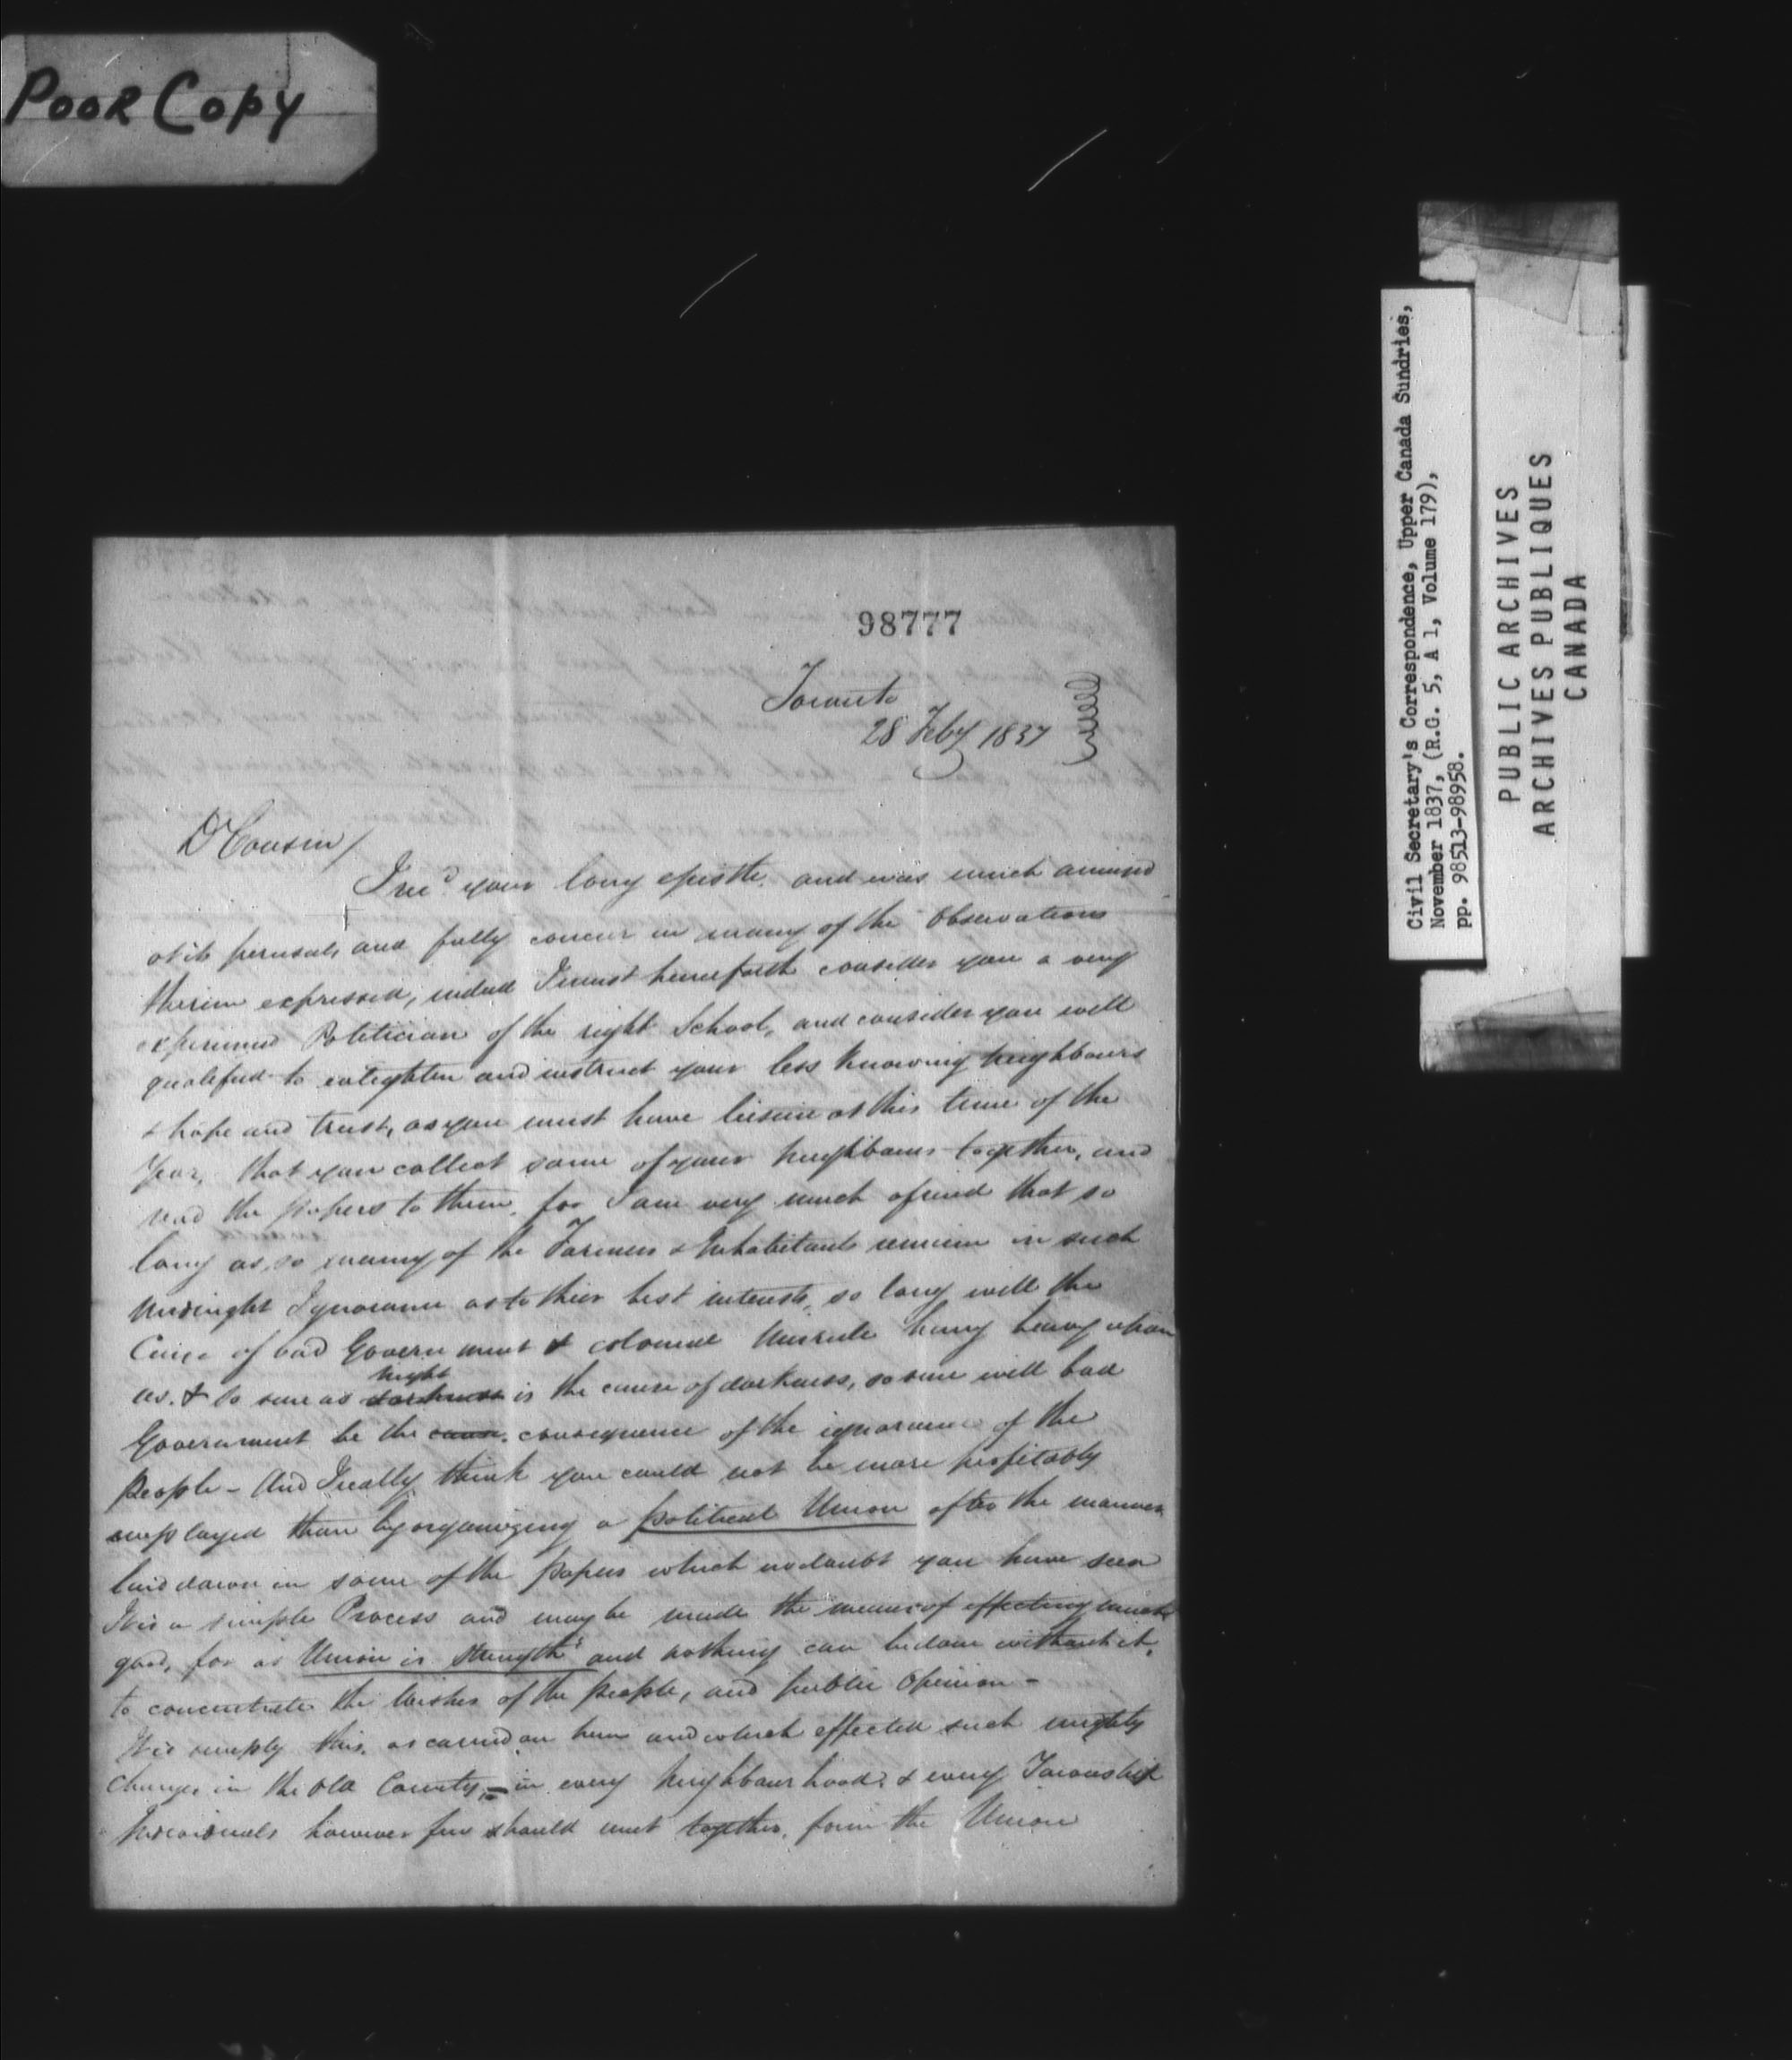 Poor Copy
98777
Toronto
28 Feby 1837
Dr Cousin /
I recd your long epistle, and was much amused
at its perusal, and fully concur in many of the Observations
therein expressed, indeed I must henceforth consider you a very
experienced Politician of the right School, and consider you well
qualified to enlighten and instruct your less knowing neighbours
& hope and trust, as you must have leisure at this time of the
Year, that you collect some of your neighbours together, and
read the papers to them, for I am very much afraid that so
long as so many of the Farmers & Inhabitants remain in such
Midnight Ignorance as to their best interests, so long will the
Curse of bad Government & colonial Misrule hang heavy upon
us. & so sure as darkness night is the cause of darkness, so sure will bad
Government be the cause, consequence of the ignorance of the
People - And I really think you could not be more profitably
employed than by organizing a political Union after the manner
laid down in some of the papers which no doubt you have seen
It is a simple Process and may be made the means of effecting much
good, for as Union is strength and nothing can be done without it,
to concentrate the Wishes of the people, and public Opinion -
It is simply this, as carried on here and which effected such mighty
Changes in the Old Country, - in every Neighbourhood, & every Township
Individuals however few should meet together, form the Union
Civil Secretary's Correspondence, Upper Canada Sundries,
November 1837, (R.G. 5, A 1, Volume 179),
pp. 98513-98958.
PUBLIC ARCHIVES
ARCHIVES PUBLIQUES
CANADA